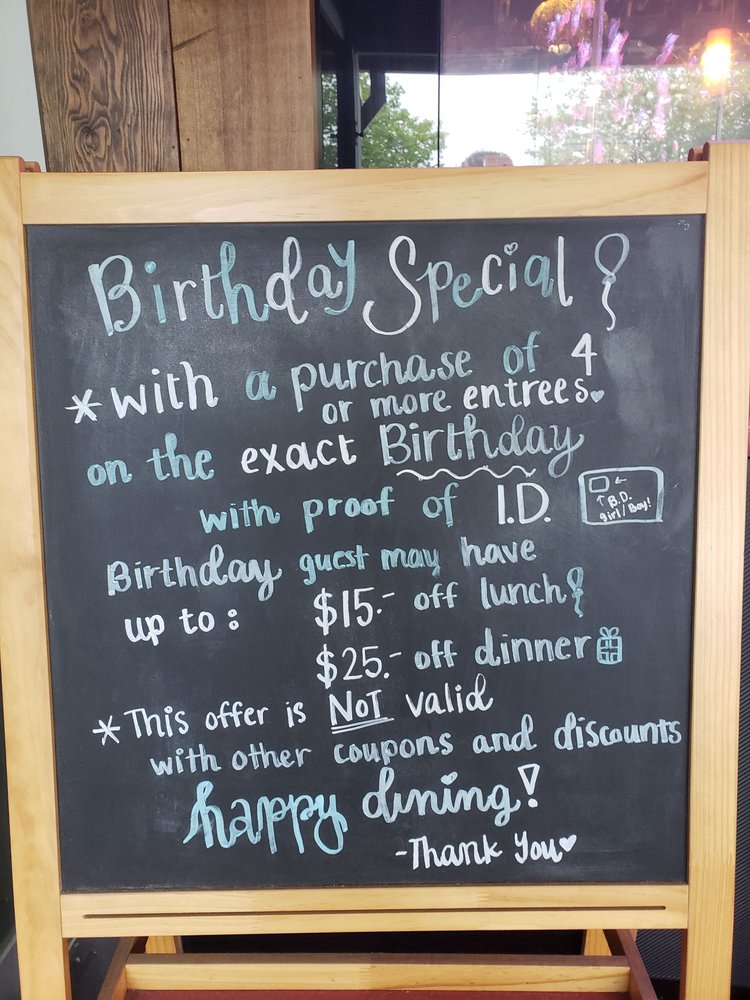 Birthday Special
*with a purchase of 4
or more entrees.
on the exact Birthday
with proof of I.D.
↑ B.D.
girl/Boy!
Birthday guest may have
up to: $15.- off lunch
$25.- off dinner
*This offer is NOT valid
with other coupons and discounts
happy dining!
-Thank You